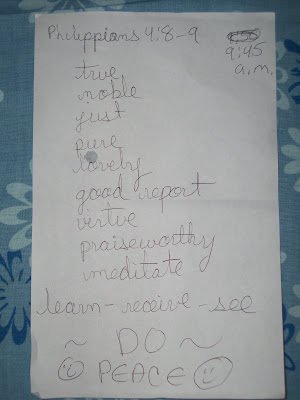 Philippians 4:8-9
9:45
a.m.
true
noble
just
pure
lovely
good report
virtue
praiseworthy
meditate
learn - receive - see
~ DO ~
PEACE